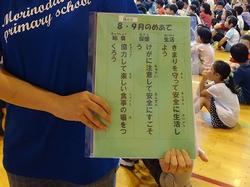 Morinoda
primary school
8・9月のめあて
生活
きまりを守って安全に生活し
よう
保健
けがに注意して安全にすごそ
う
給食
協力して楽しい食事の場をつ
くろう